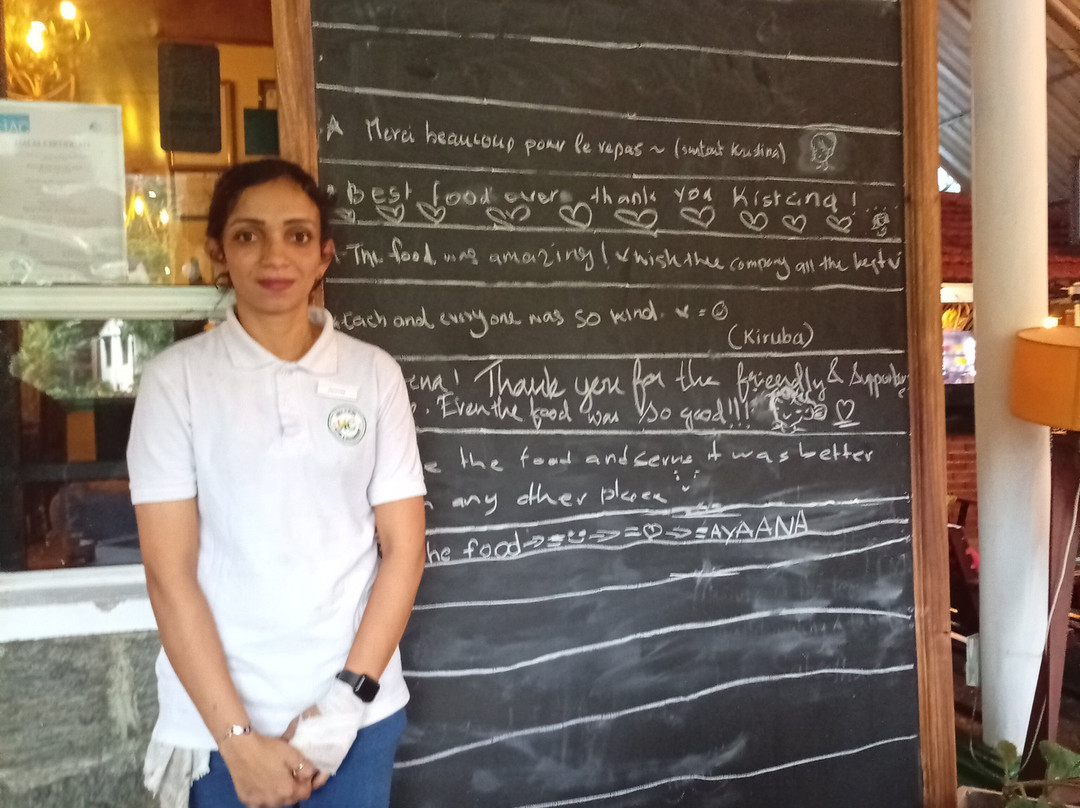 Merci beaucoup pour le repas ~ (surtout Krisdina)
Best food ever thank you Kistana!
The food was amazing! wish the company all the best
Each and everyone was so kind. = 
(Kiruba)
ena! Thank you for the friendly & Supportive
. Even the food was so good!!!
e the food and serve it was better
any other place
he food → = → = ♡ → = AYAANA